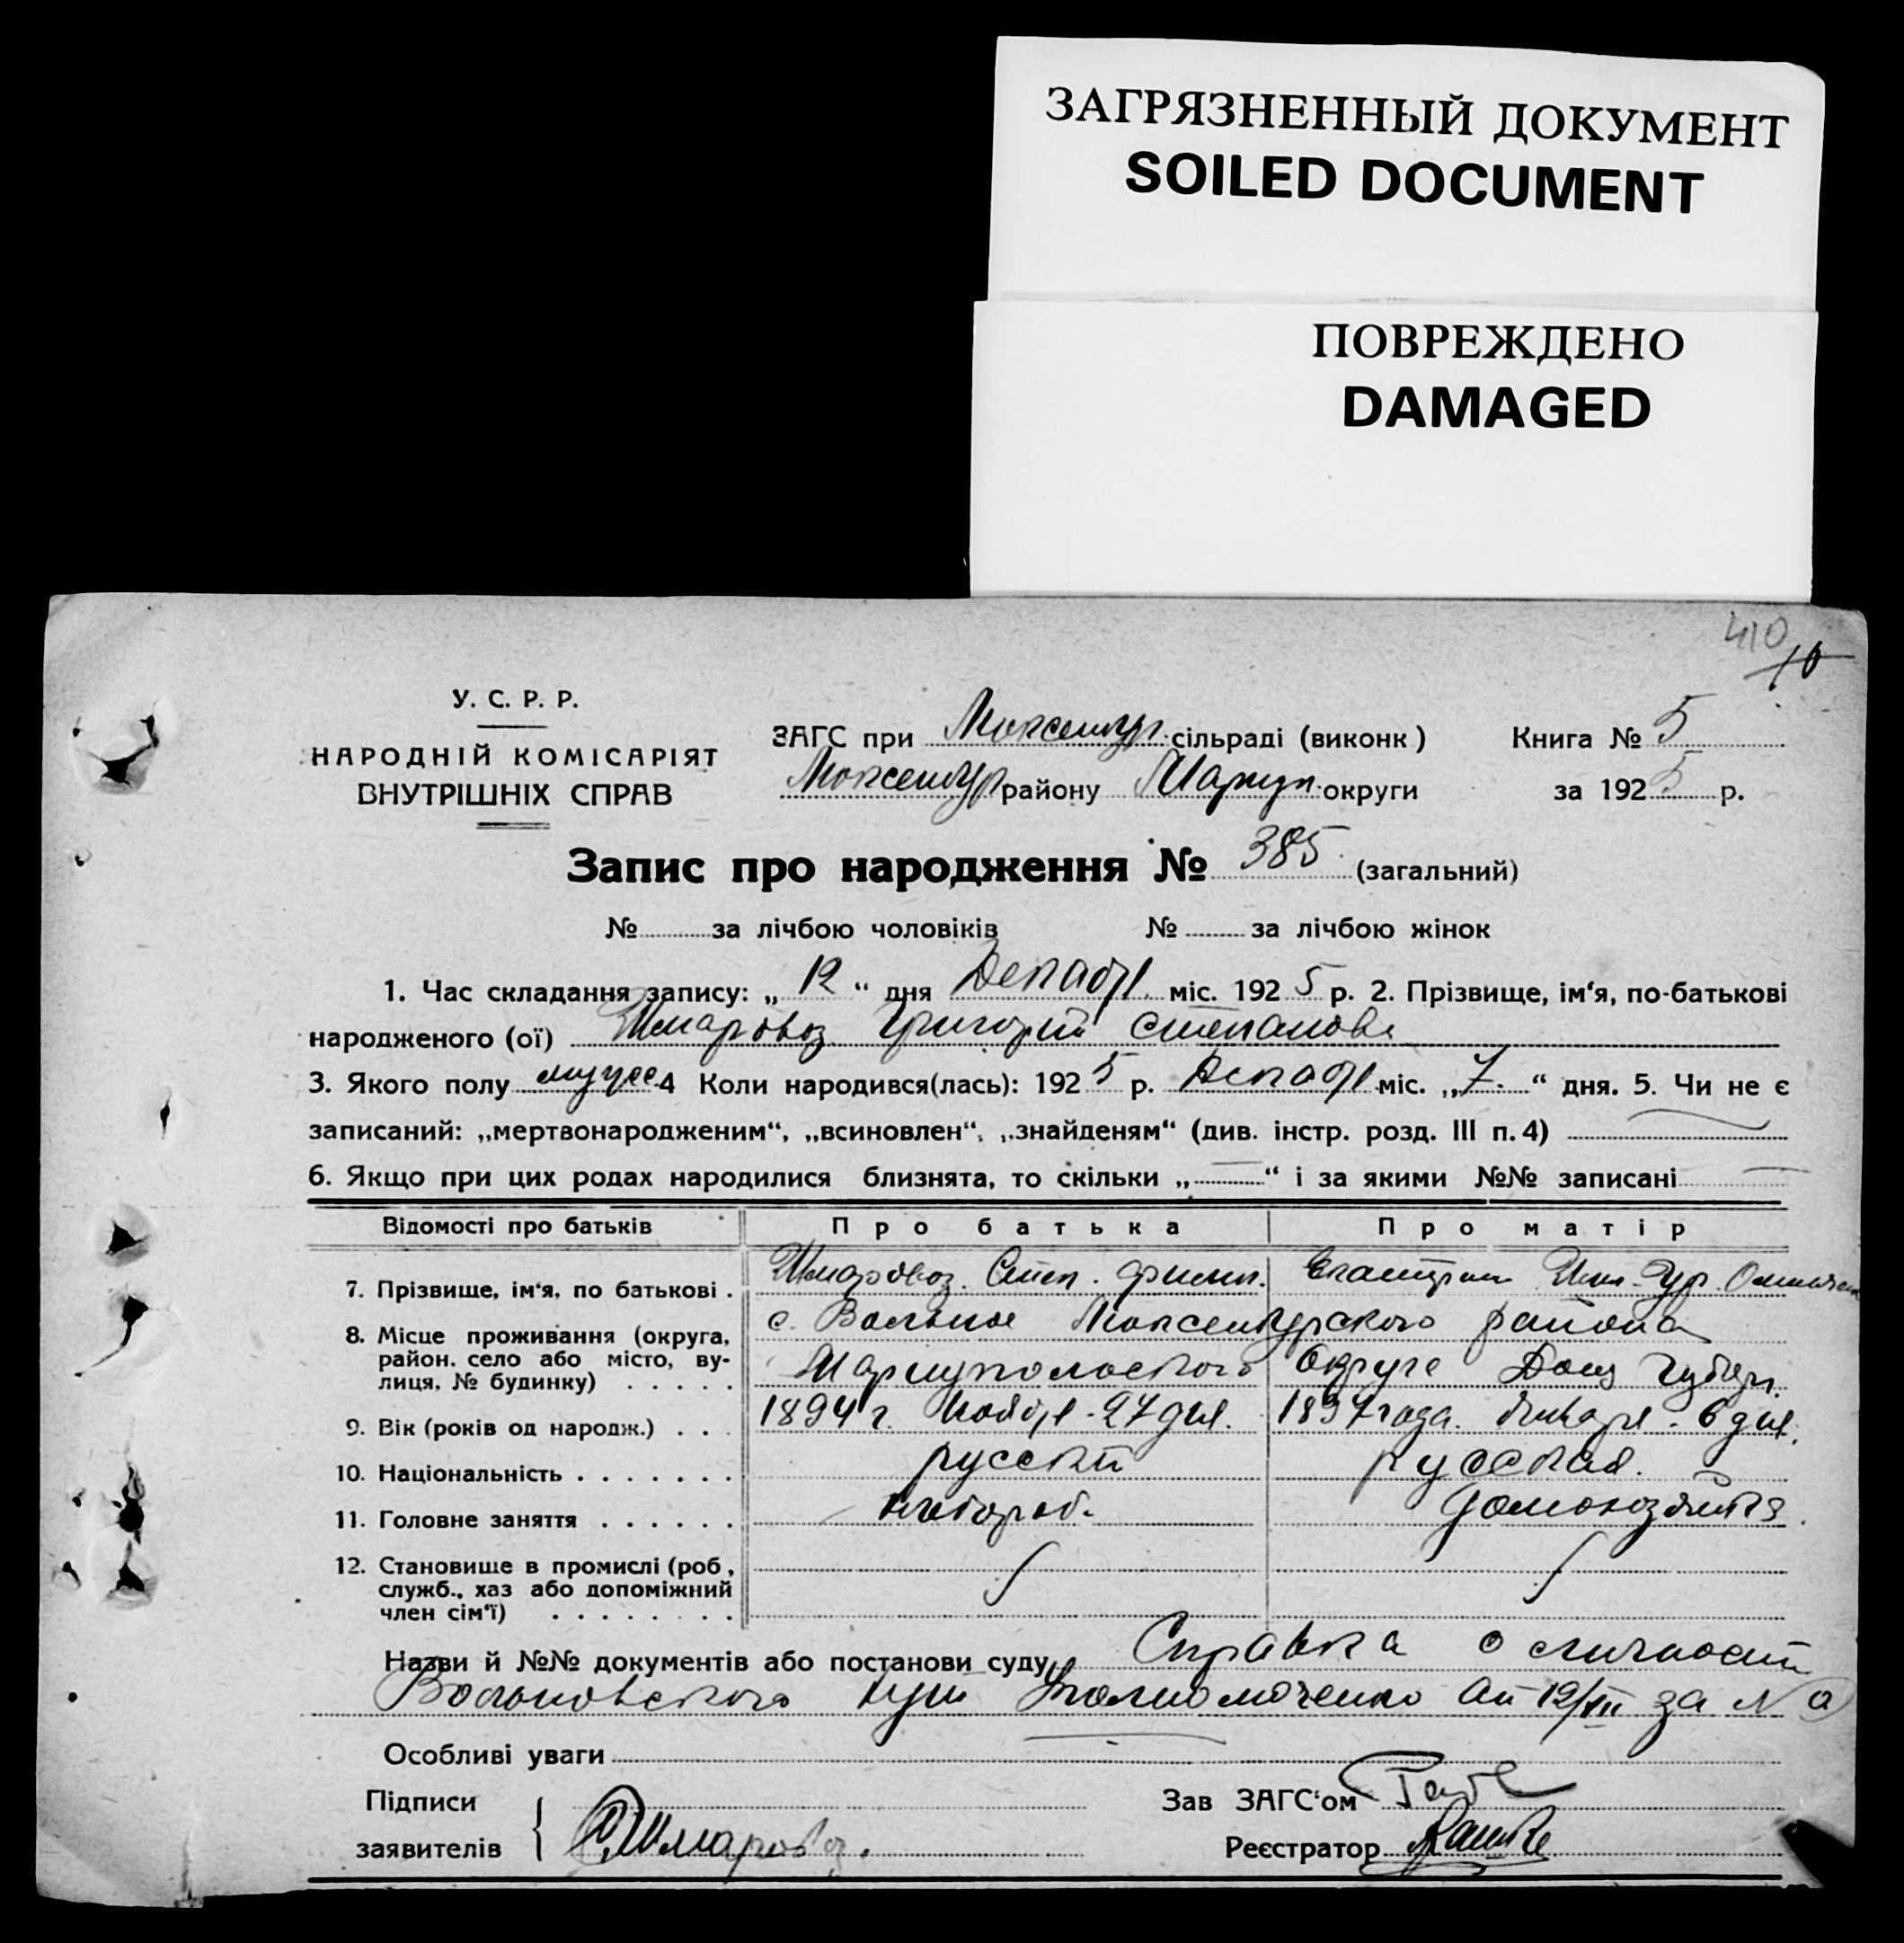 ЗАГРЯЗНЕННЫЙ ДОКУМЕНТ
SOILED DOCUMENT
ПОВРЕЖДЕНО
DAMAGED
410
10
У. С. Р. Р.
НАРОДНІЙ КОМІСАРІЯТ
ВНУТРІШНІХ СПРАВ
ЗАГС при сільраді (виконк) Книга № 5
району Мариуп. округи за 1925 р.
Запис про народження № 385 (загальний)
№ за лічбою чоловіків № за лічбою жінок
1. Час складання запису: „12“ дня Декабр. міс. 1925 р. 2. Прізвище, ім‘я, по-батькові
народженого (ої) Шмаровоз Григорий Степанов
3. Якого полу мужс. 4 Коли народився(лась): 1925 р. Декабр міс. „7.“ дня. 5. Чи не є
записаний: „мертвонародженим“, „всиновлен“, „знайденям“ (див. інстр. розд. III п. 4)
6. Якщо при цих родах народилися близнята, то скільки „ “ і за якими №№ записані
Відомості про батьків Про батька Про матір
7. Прізвище, ім‘я, по батькові . Шмаровоз. Степ. Филип.
8. Місце проживання (округа, с. Вольное района
район. село або місто, ву-
лиця, № будинку) . . . . . Мариупольского Округа Донец Губерн.
9. Вік (років од народж.) . . . 1894 г. Ноябр - 27 дня. 1897 года. Января - 6 дня.
10. Національність . . . . . . . русский русская.
11. Головне заняття . . . . . . хлебороб. домохозяйка
12. Становище в промислі (роб,
служб., хаз або допоміжний
член сім‘ї) . . . . . . . .
Назви й №№ документів або постанови суду Справка о личности
Вольновского от 12/XII за №
Особливі уваги
Підписи Зав ЗАГС‘ом
заявителів С. Шмаровоз. Реєстратор